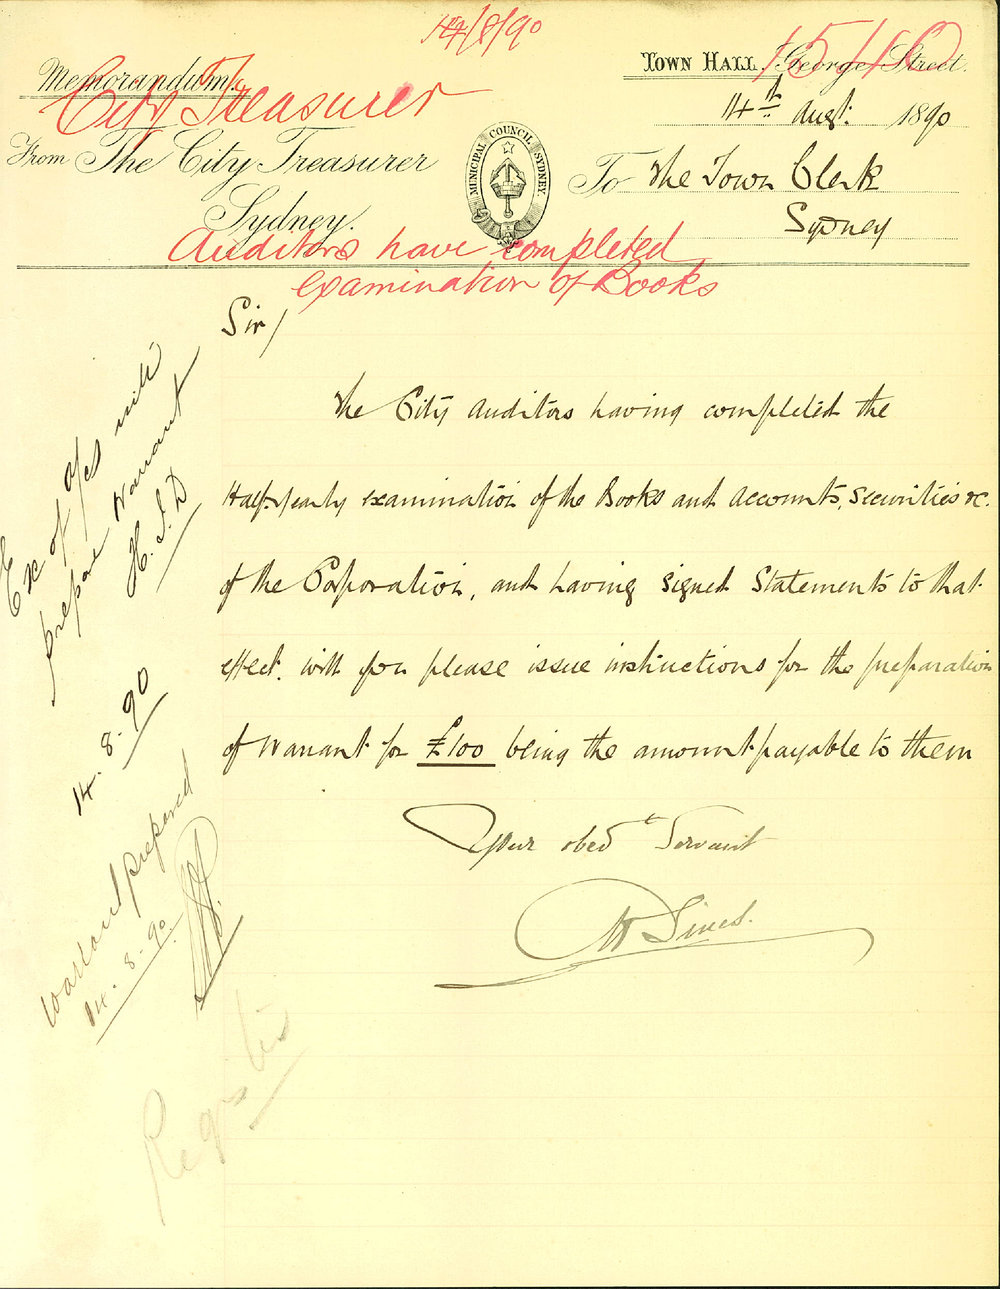 14/8/90
1540
Memorandum.
City Treasurer
Town Hall. George Street.
14th Augt. 1890
From The City Treasurer
Sydney.
MUNICIPAL COUNCIL SYDNEY.
To The Town Clerk
Sydney
Auditors have completed
examination of Books
Sir/
The City Auditors having completed the
Half-yearly examination of the Books and accounts, securities &c.
of the Corporation, and having signed Statements to that
effect. will you please issue instructions for the preparation
of Warrant for £100 being the amount payable to them
Your obedt Servant
Ex of a/cs will
prepare Warrant
H.J.D
14.8.90
Warrant prepared
14.8.90
Register